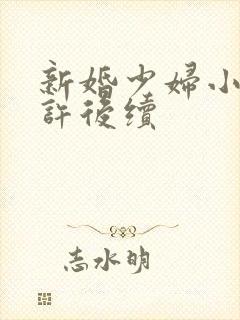 新婚少婦小
許後續
志水明